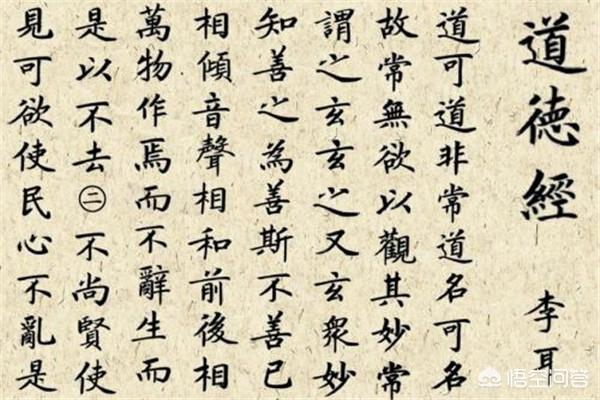 道德經
李耳
道可道非常道名可名
故常無欲以觀其妙常
謂之玄玄之又玄衆妙
知善之為善斯不善已
相傾音聲相和前後相
萬物作焉而不辭生而
是以不去㊁不尚賢使
見可欲使民心不亂是
悟空问答